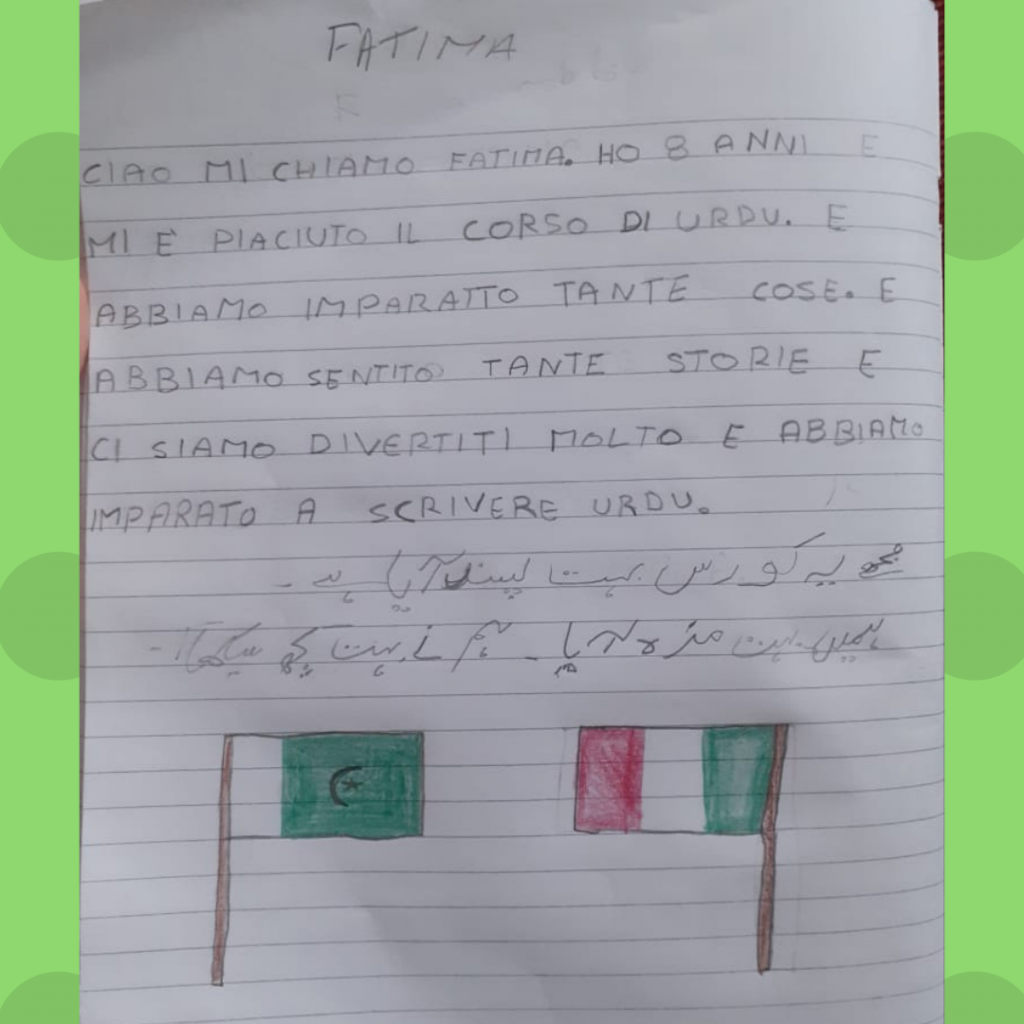 FATIMA
CIAO MI CHIAMO FATIMA. HO 8 ANNI E
MI È PIACIUTO IL CORSO DI URDU. E
ABBIAMO IMPARATTO TANTE COSE. E
ABBIAMO SENTITO TANTE STORIE E
CI SIAMO DIVERTITI MOLTO E ABBIAMO
IMPARATO A SCRIVERE URDU.
مجھے یہ کورس بہت پسند آیا ہے ۔
ہمیں بہت مزہ آیا ۔ ہم نے بہت کچھ سیکھا ۔